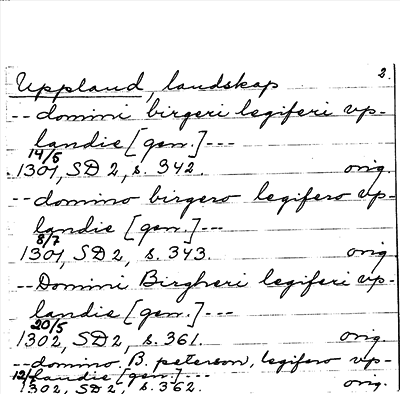 Uppland, landskap 2.
-- domini birgeri legiferi vp-
landie [gen.] ---
14/5
1301, SD 2, s. 342. orig.
-- domino birgero legifero vp-
landie [gen.] ---
8/7
1301, SD 2, s. 343. orig.
-- Domini Birgheri legiferi vp-
landie [gen.] ---
20/5
1302, SD 2, s. 361. orig.
-- domino B. peterson, legifero vp-
landie [gen.] ---
1302, SD 2, s. 362. orig.